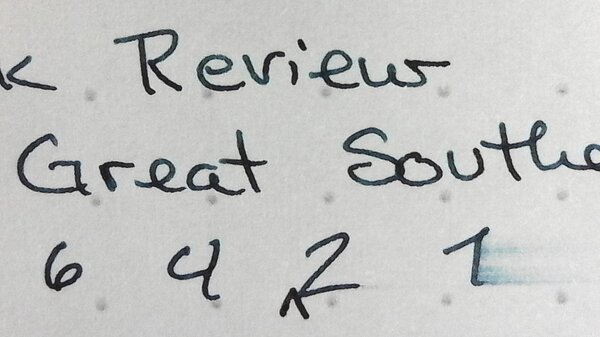 k Review
Great Southe
6 4 2 1